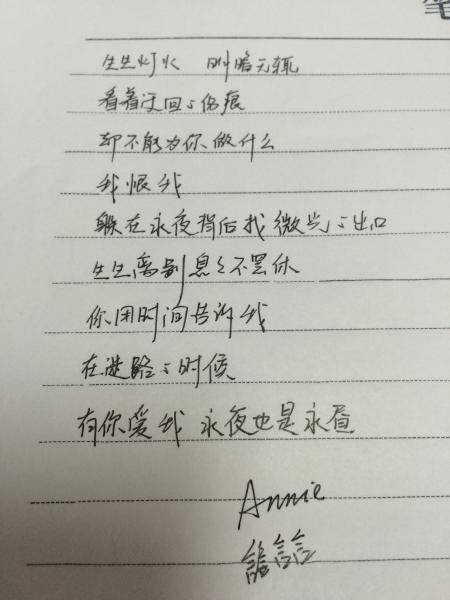 生生灯火 明暗无辄
看着迂回的伤痕
却不能为你做什么
我恨我
躲在永夜背后找微光的出口
生生离别 息々不罢休
你用时间告诉我
在迷路的时候
有你爱我 永夜也是永昼
Annie